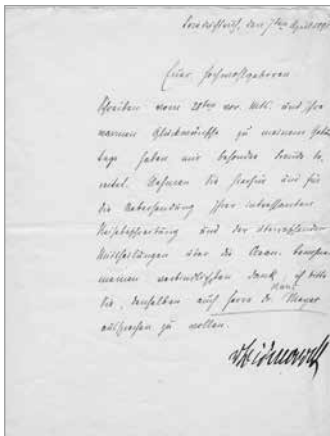 Friedrichsruh, den 7ten April 1891
Euer Hochwohlgeboren
Schreiben vom 28ten vor. Mts. und Ihre
warmen Glückwünsche zu meinem Gebu
tage haben mir besondre Freude be
reitet. Nehmen Sie hierfür und für
die Uebersendung Ihrer interessanten
Reisebeschreibung und der
Mittheilungen über die Ocean.
meinen verbindlichsten Dank, ich bitte
Sie, denselben auch Herrn Dr. Hans Meyer
aussprechen zu wollen.
vBismarck